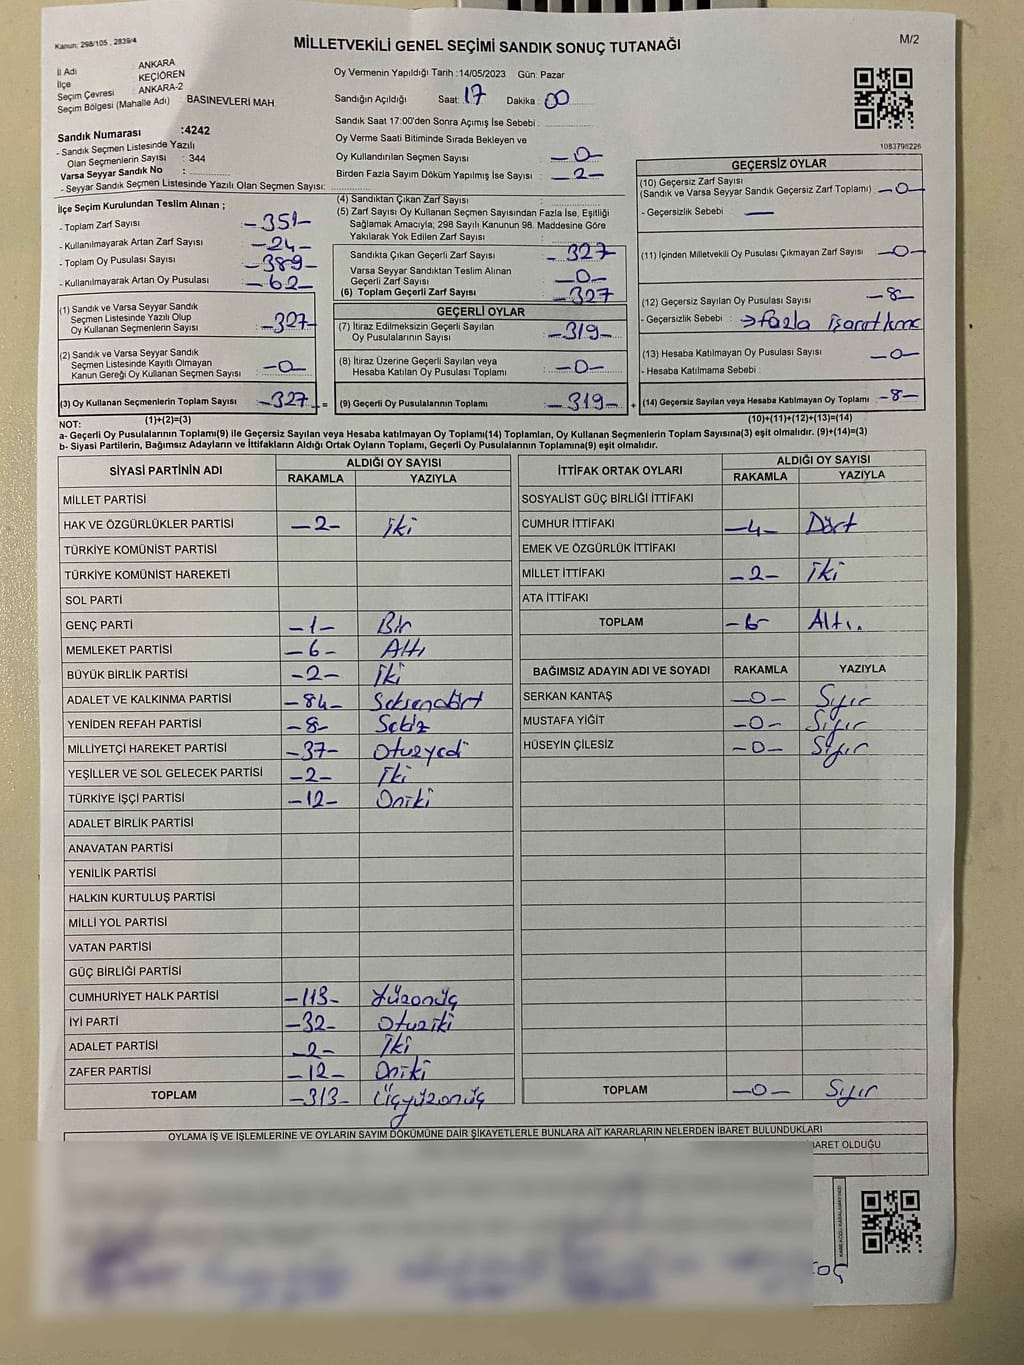 Kanun: 298/105 , 2839/4
MİLLETVEKİLİ GENEL SEÇİMİ SANDIK SONUÇ TUTANAĞI
M/2
İl Adı : ANKARA
İlçe : KEÇİÖREN
Seçim Çevresi : ANKARA-2
Seçim Bölgesi (Mahalle Adı) : BASINEVLERİ MAH.
Sandık Numarası :4242
- Sandık Seçmen Listesinde Yazılı
Olan Seçmenlerin Sayısı : 344
Varsa Seyyar Sandık No :
- Seyyar Sandık Seçmen Listesinde Yazılı Olan Seçmen Sayısı:
Oy Vermenin Yapıldığı Tarih :14/05/2023 Gün: Pazar
Sandığın Açıldığı Saat: 17 Dakika : 00
Sandık Saat 17:00'den Sonra Açımış İse Sebebi :
Oy Verme Saati Bitiminde Sırada Bekleyen ve
Oy Kullandırılan Seçmen Sayısı : -0-
Birden Fazla Sayım Döküm Yapılmış İse Sayısı : -2-
1083796226
İlçe Seçim Kurulundan Teslim Alınan ;
- Toplam Zarf Sayısı : -351-
- Kullanılmayarak Artan Zarf Sayısı : -24-
- Toplam Oy Pusulası Sayısı : -389-
- Kullanılmayarak Artan Oy Pusulası : -62-
(1) Sandık ve Varsa Seyyar Sandık
Seçmen Listesinde Yazılı Olup
Oy Kullanan Seçmenlerin Sayısı : -327-
(2) Sandık ve Varsa Seyyar Sandık
Seçmen Listesinde Kayıtlı Olmayan
Kanun Gereği Oy Kullanan Seçmen Sayısı : -0-
(3) Oy Kullanan Seçmenlerin Toplam Sayısı : -327- =
(1)+(2)=(3)
(4) Sandıktan Çıkan Zarf Sayısı :
(5) Zarf Sayısı Oy Kullanan Seçmen Sayısından Fazla İse, Eşitliği
Sağlamak Amacıyla; 298 Sayılı Kanunun 98. Maddesine Göre
Yakılarak Yok Edilen Zarf Sayısı :
Sandıkta Çıkan Geçerli Zarf Sayısı : -327
Varsa Seyyar Sandıktan Teslim Alınan
Geçerli Zarf Sayısı : -0-
(6) Toplam Geçerli Zarf Sayısı : -327
GEÇERLİ OYLAR
(7) İtiraz Edilmeksizin Geçerli Sayılan
Oy Pusulalarının Sayısı : -319-
(8) İtiraz Üzerine Geçerli Sayılan veya
Hesaba Katılan Oy Pusulası Toplamı : -0-
(9) Geçerli Oy Pusulalarının Toplamı : -319- +
GEÇERSİZ OYLAR
(10) Geçersiz Zarf Sayısı
(Sandık ve Varsa Seyyar Sandık Geçersiz Zarf Toplamı) : -0-
- Geçersizlik Sebebi : —
(11) İçinden Milletvekili Oy Pusulası Çıkmayan Zarf Sayısı : -0-
(12) Geçersiz Sayılan Oy Pusulası Sayısı : -8-
- Geçersizlik Sebebi : → fazla işaretleme
(13) Hesaba Katılmayan Oy Pusulası Sayısı : -0-
- Hesaba Katılmama Sebebi :
(14) Geçersiz Sayılan veya Hesaba Katılmayan Oy Toplamı : -8-
(10)+(11)+(12)+(13)=(14)
NOT:
a- Geçerli Oy Pusulalarının Toplamı(9) ile Geçersiz Sayılan veya Hesaba katılmayan Oy Toplamı(14) Toplamları, Oy Kullanan Seçmenlerin Toplam Sayısına(3) eşit olmalıdır. (9)+(14)=(3)
b- Siyasi Partilerin, Bağımsız Adayların ve İttifakların Aldığı Ortak Oyların Toplamı, Geçerli Oy Pusulalarının Toplamına(9) eşit olmalıdır.
SİYASİ PARTİNİN ADI ALDIĞI OY SAYISI
RAKAMLA YAZIYLA
MİLLET PARTİSİ
HAK VE ÖZGÜRLÜKLER PARTİSİ -2- İki
TÜRKİYE KOMÜNİST PARTİSİ
TÜRKİYE KOMÜNİST HAREKETİ
SOL PARTİ
GENÇ PARTİ -1- Bir
MEMLEKET PARTİSİ -6- Altı
BÜYÜK BİRLİK PARTİSİ -2- İki
ADALET VE KALKINMA PARTİSİ -84- Seksendört
YENİDEN REFAH PARTİSİ -8- Sekiz
MİLLİYETÇİ HAREKET PARTİSİ -37- Otuzyedi
YEŞİLLER VE SOL GELECEK PARTİSİ -2- İki
TÜRKİYE İŞÇİ PARTİSİ -12- Oniki
ADALET BİRLİK PARTİSİ
ANAVATAN PARTİSİ
YENİLİK PARTİSİ
HALKIN KURTULUŞ PARTİSİ
MİLLİ YOL PARTİSİ
VATAN PARTİSİ
GÜÇ BİRLİĞİ PARTİSİ
CUMHURİYET HALK PARTİSİ -113- Yüzonüç
İYİ PARTİ -32- Otuziki
ADALET PARTİSİ -2- İki
ZAFER PARTİSİ -12- Oniki
TOPLAM -313- Üçyüzonüç
İTTİFAK ORTAK OYLARI ALDIĞI OY SAYISI
RAKAMLA YAZIYLA
SOSYALİST GÜÇ BİRLİĞİ İTTİFAKI
CUMHUR İTTİFAKI -4- Dört
EMEK VE ÖZGÜRLÜK İTTİFAKI
MİLLET İTTİFAKI -2- İki
ATA İTTİFAKI
TOPLAM -6- Altı.
BAĞIMSIZ ADAYIN ADI VE SOYADI RAKAMLA YAZIYLA
SERKAN KANTAŞ -0- Sıfır
MUSTAFA YİĞİT -0- Sıfır
HÜSEYİN ÇİLESİZ -0- Sıfır
TOPLAM -0- Sıfır
OYLAMA İŞ VE İŞLEMLERİNE VE OYLARIN SAYIM DÖKÜMÜNE DAİR ŞİKAYETLERLE BUNLARA AİT KARARLARIN NELERDEN İBARET BULUNDUKLARI
BARET OLDUĞU